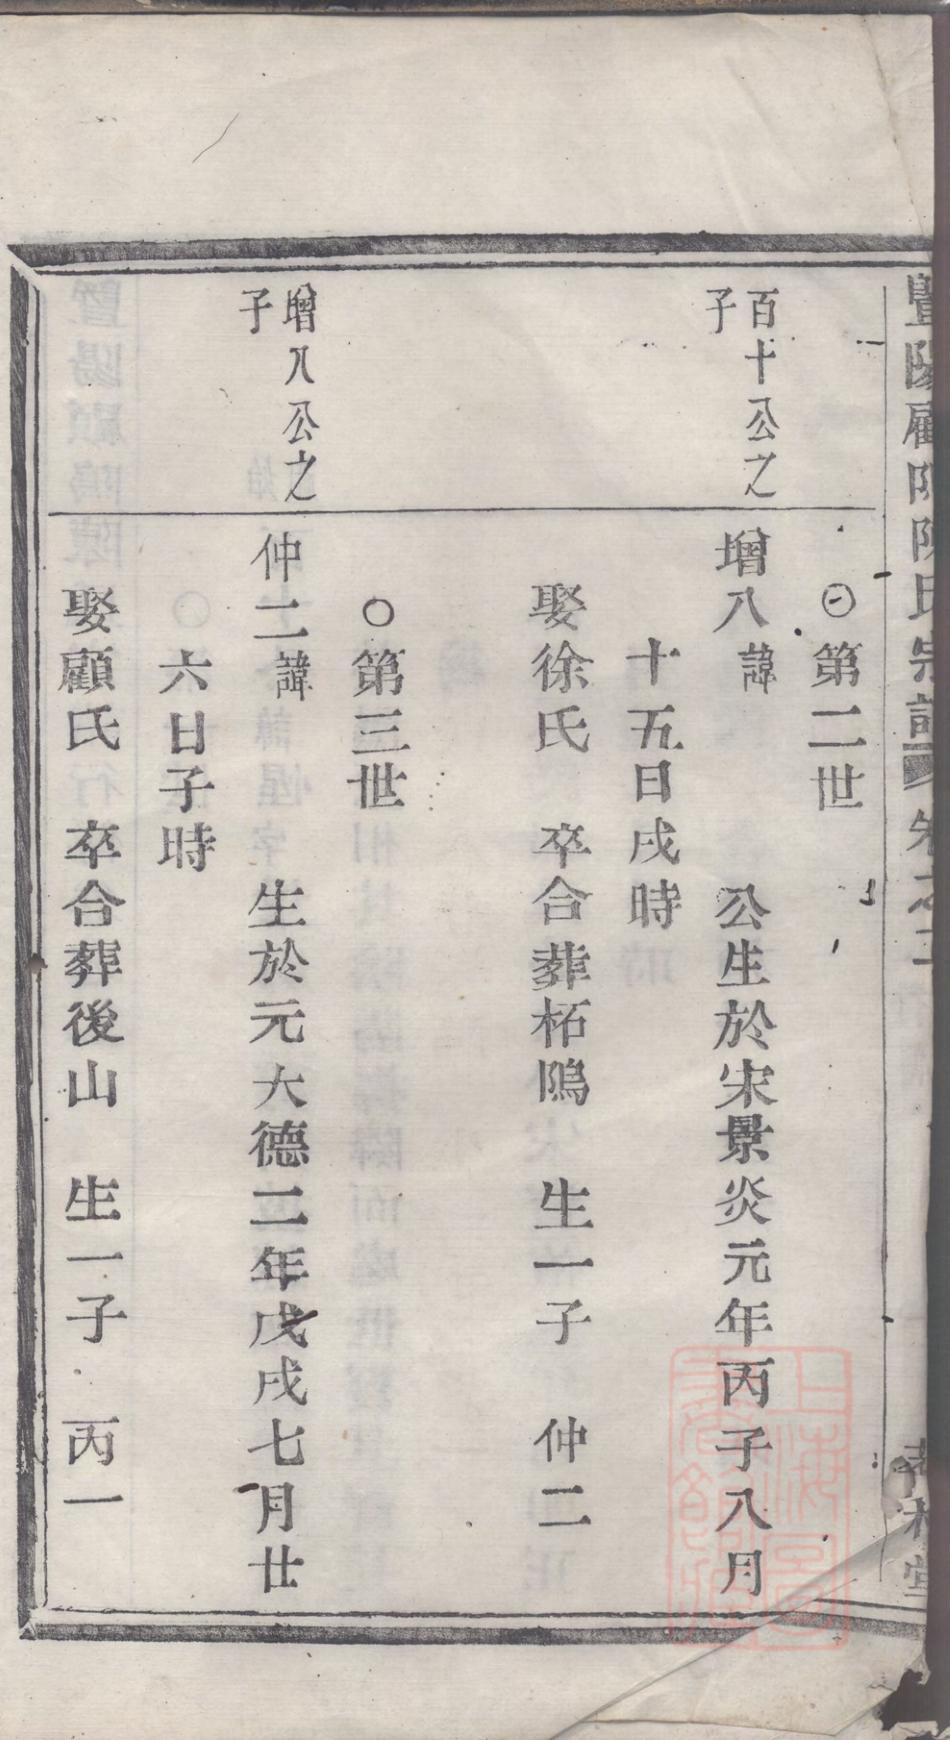 暨陽顧陽陳氏宗譜 卷之二
第二世
百十公之
子
增八諱 公生於宋景炎元年丙子八月
十五日戌時
娶徐氏 卒合葬柘隝 生一子 仲二
○第三世
增八公之
子
仲二諱 生於元大德二年戊戌七月廿
六日子時
娶顧氏 卒合葬後山 生一子 丙一